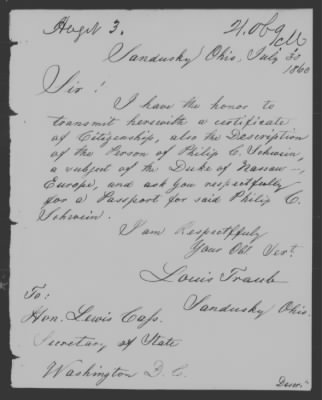 Sandusky Ohio. July 30
1860
Sir!
I have the honor to
transmit herewith a certificate
of Citizenship, also the Description
of the Person of Philip C. Schwein,
a subject of the Duke of Nassau -,
Europe, and ask you respectfully
for a Passport for said Philip C.
Schwein.
I am Respectfully
Your Obt Servt.
Louis Traub
Sandusky Ohio.
To:
Hon. Lewis Cass.
Secretary of State
Washington D. C.